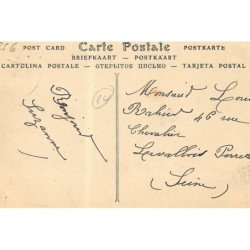 556
POST CARD Carte Postale POSTKARTE
BRIEFKAART — POSTKAART
CARTOLINA POSTALE — ОТКРЫТОЕ ПИСЬМО — TARJETA POSTAL
Bonjour
Suzanne
14
Monsieur Lou
46 rue
Chevalier
Levallois Perret
(Seine)